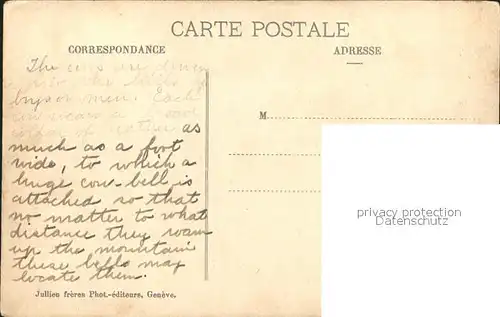 CARTE POSTALE
CORRESPONDANCE
ADRESSE
The cows are driven
the hills
by men. Each
cow wears a
of leather as
much as a foot
wide, to which a
huge cow-bell is
attached so that
no matter to what
distance they roam
up the mountain
these bells may
locate them.
M
privacy protection
Datenschutz
Jullien frères Phot.-éditeurs, Genève.